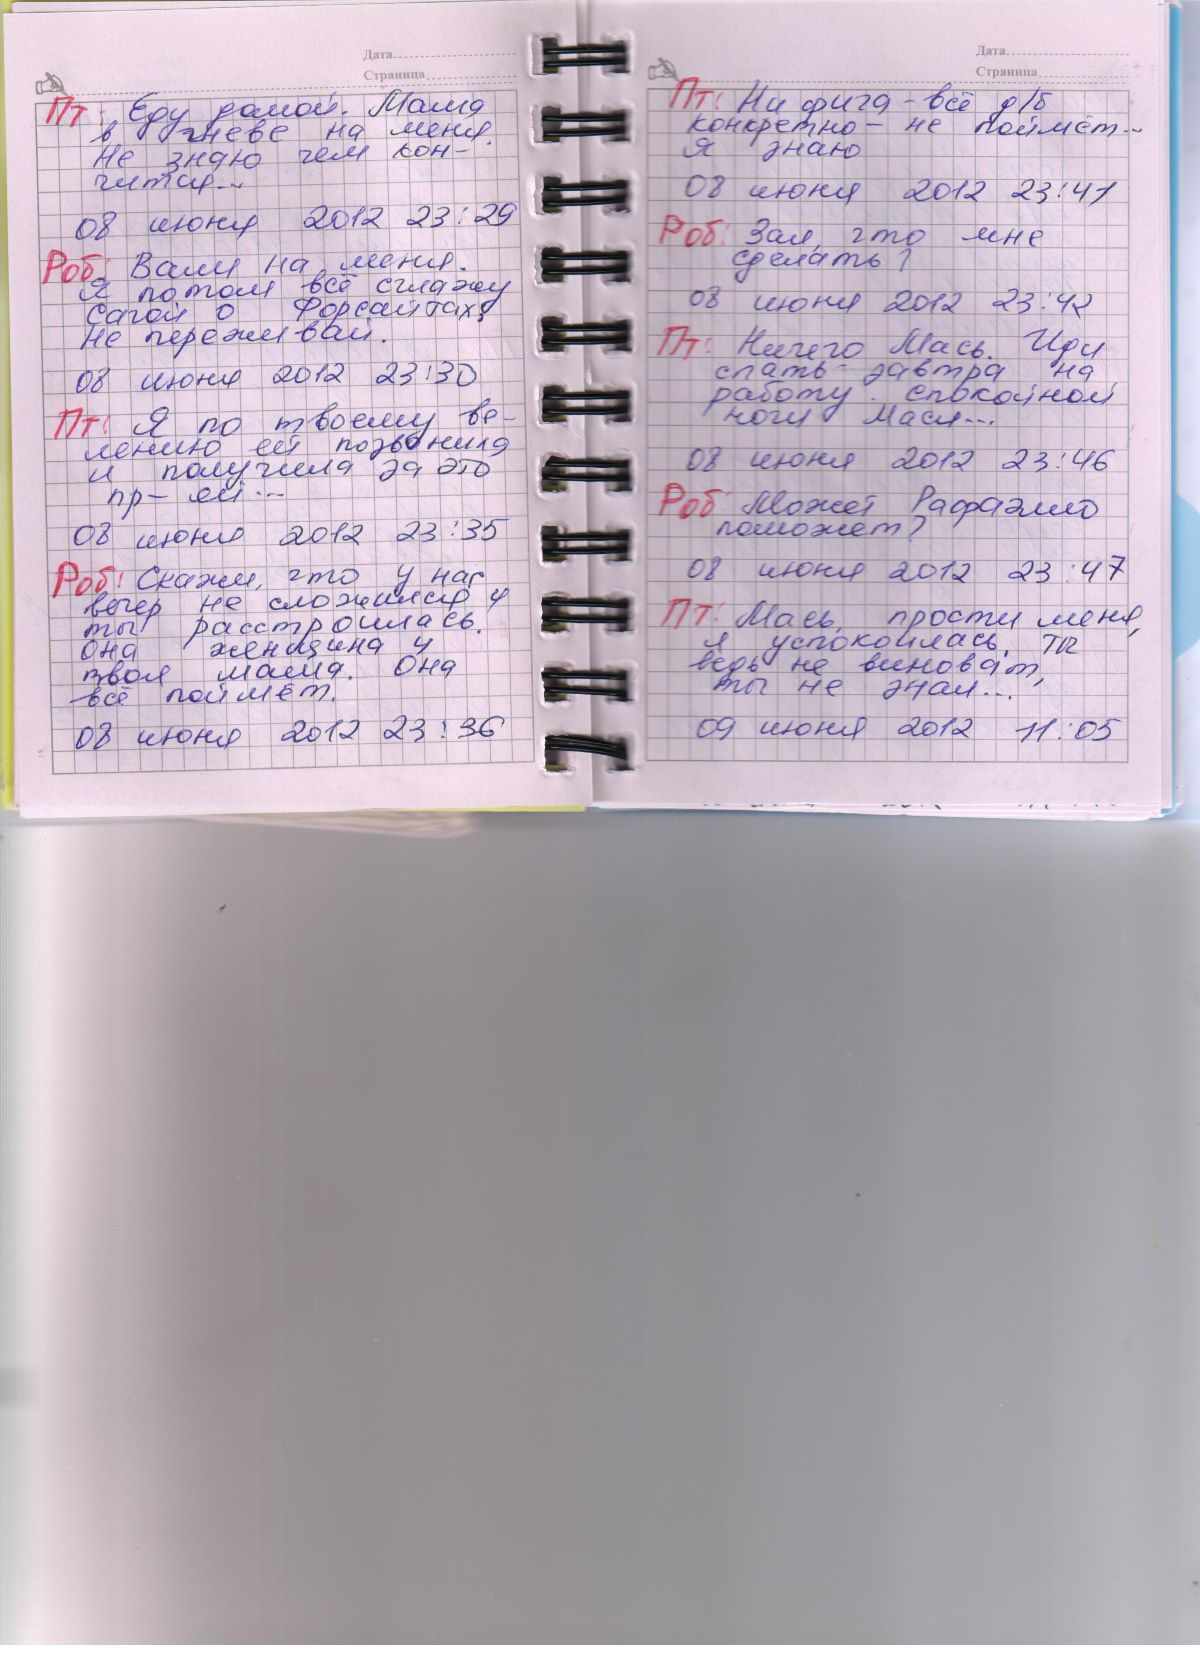 Дата
Страница
Пт: Еду домой. Мама
в гневе на меня.
Не знаю чем кон-
чится...
08 июня 2012 23:29
Роб: Вали на меня.
Я потом всё сглажу
Сагой о Форсайтах,
Не переживай.
08 июня 2012 23:30
Пт: Я по твоему ве-
лению ей позвонила
и получила за это
08 июня 2012 23:35
Роб: Скажи, что у нас
вечер не сложился и
ты расстроилась.
Она женщина и
твоя мама. Она
всё поймёт.
08 июня 2012 23:36
Дата
Страница
Пт: Ни фига - всё д/б
конкретно - не поймёт...
Я знаю
08 июня 2012 23:41
Роб: Зая, что мне
сделать?
08 июня 2012 23:42
Пт: Ничего Мась. Иди
спать - завтра на
работу. Спокойной
ночи Мася...
08 июня 2012 23:46
Роб: Может Рафаэлло
поможет?
08 июня 2012 23:47
Пт: Мась, прости меня,
я успокоилась, ты
ведь не виноват,
ты не знал...
09 июня 2012 11:05